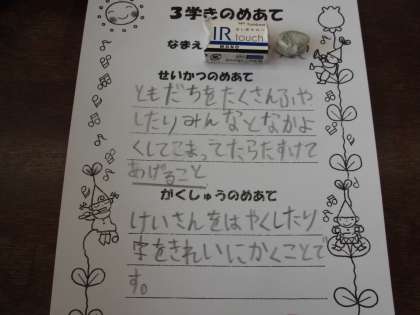 3学きのめあて
なまえ
IR
touch
MONO
せいかつのめあて
ともだちをたくさんふや
したりみんなとなかよ
くしてこまってたらたすけて
あげること
がくしゅうのめあて
けいさんをはやくしたり
字をきれいにかくことで
す。